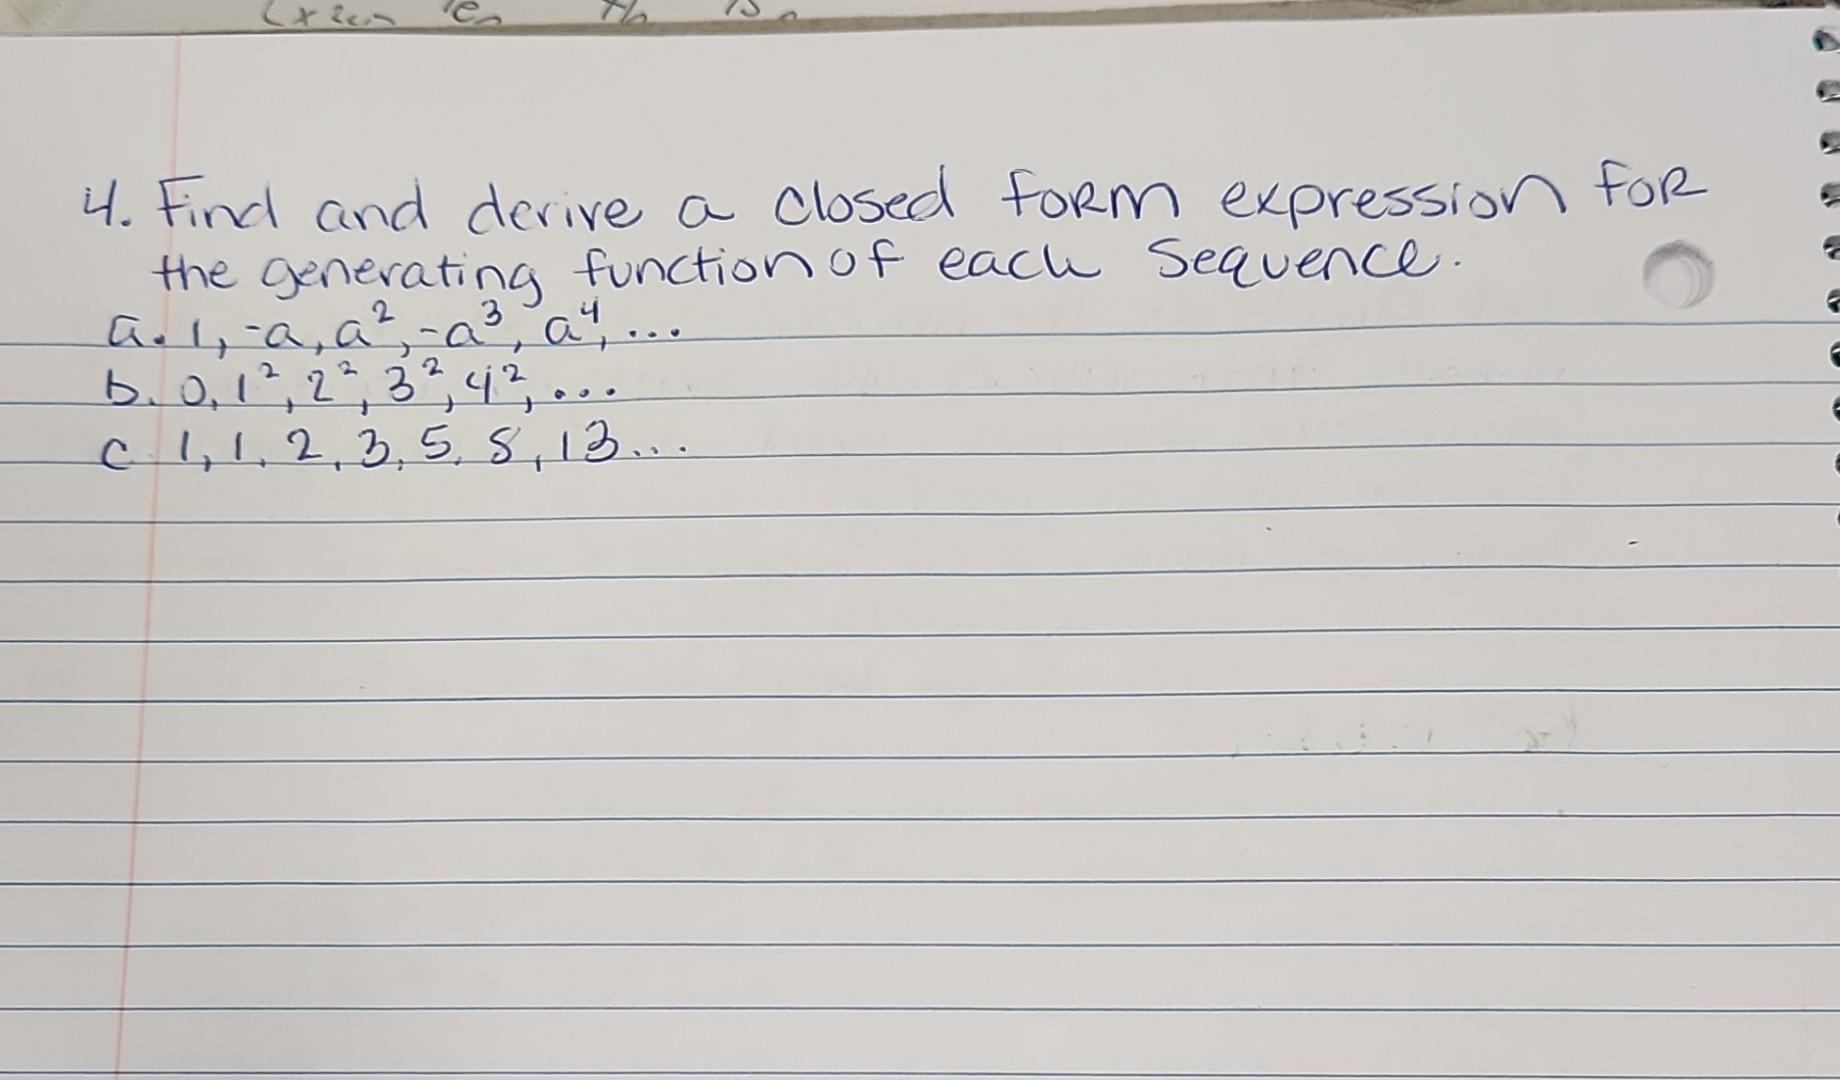 4. Find and derive a closed form expression for
the generating function of each sequence.
a. 1, -a, a², -a³, a⁴, ...
b. 0, 1², 2², 3², 4², ...
c. 1, 1, 2, 3, 5, 8, 13...